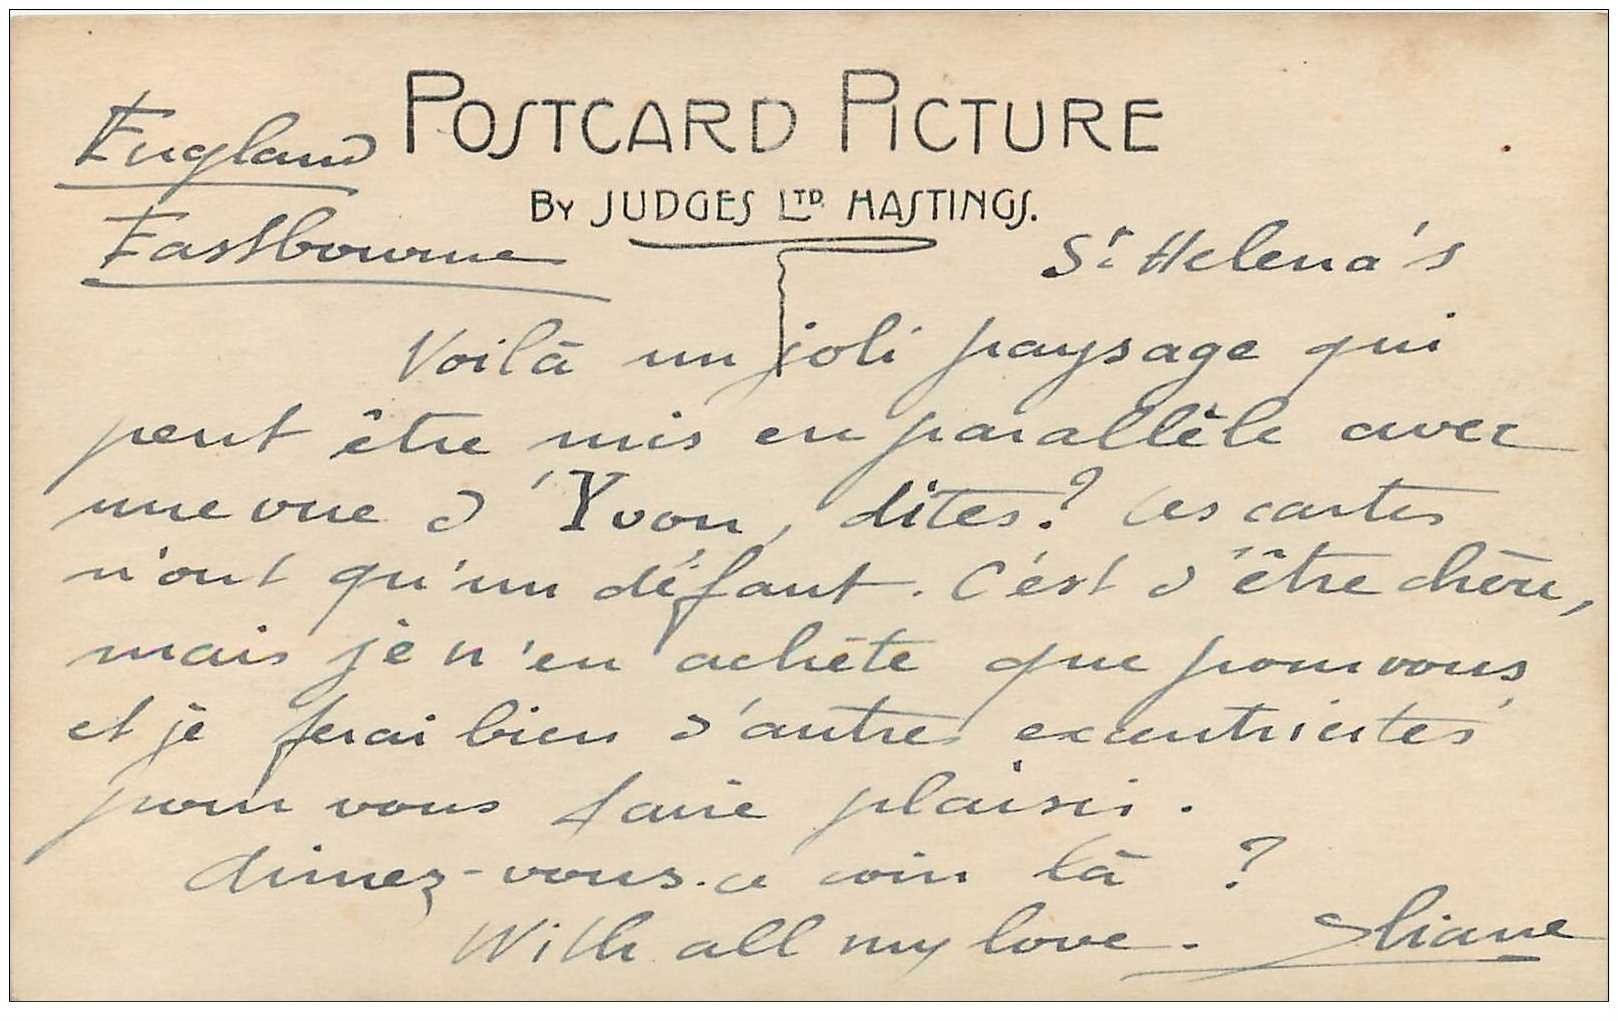 POSTCARD PICTURE
BY JUDGES LTD HASTINGS.
England
Eastbourne
St Helena's
Voilà un joli paysage qui
peut être mis en parallèle avec
une vue d'Yvon, dites? Les cartes
n'ont qu'un défaut. C'est d'être chère,
mais je n'en achète que pour vous
et je ferai bien d'autres excentricités
pour vous faire plaisir.
Aimez-vous ce coin là ?
With all my love. Eliane